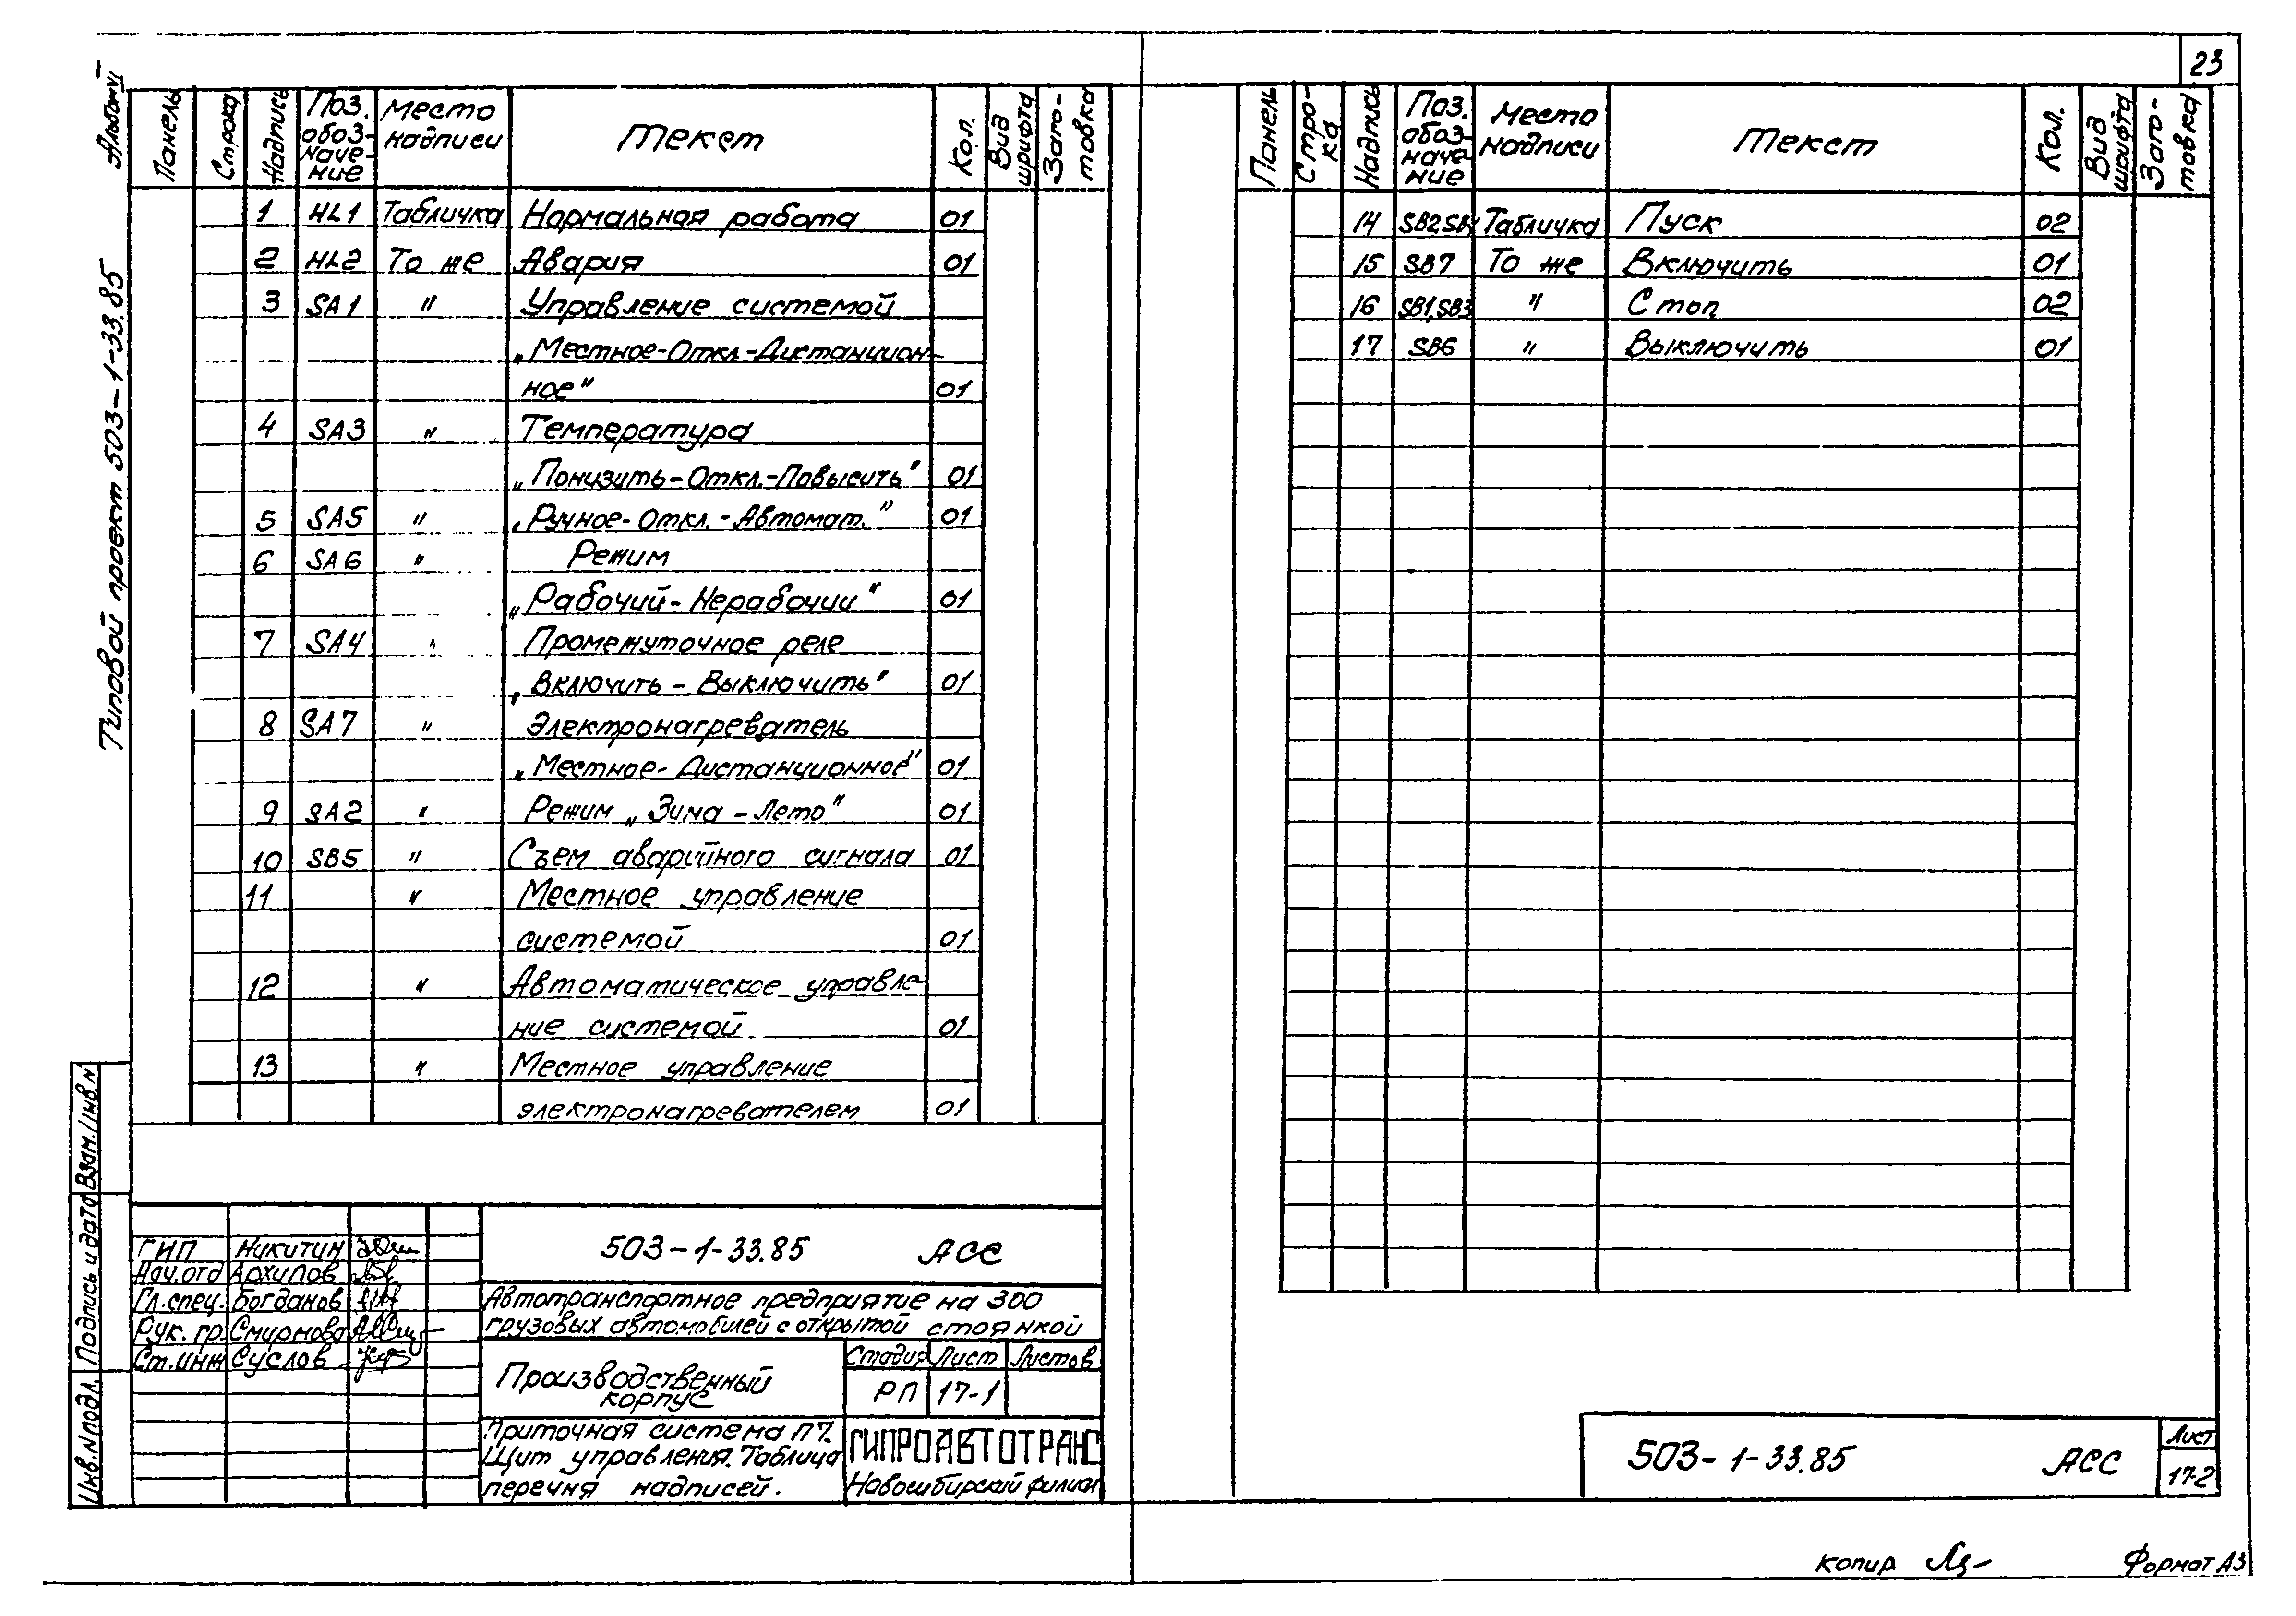 23
Альбом VI
Типовой проект 503-1-33.85
Панель Строка Надпись Поз. обозначение Место надписи Текст Кол. Вид шрифта Заготовка
1 HL1 Табличка Нормальная работа 01
2 HL2 То же Авария 01
3 SA1 " Управление системой
„Местное-Откл-Дистанцион-
ное" 01
4 SA3 " Температура
„Понизить-Откл.-Повысить" 01
5 SA5 " „Ручное-Откл.-Автомат." 01
6 SA6 " Режим
„Рабочий-Нерабочии" 01
7 SA4 " Промежуточное реле
„Включить-Выключить" 01
8 SA7 " Электронагреватель
„Местное-Дистанционное" 01
9 SA2 " Режим „Зима-Лето" 01
10 SB5 " Съем аварийного сигнала 01
11 " Местное управление
системой 01
12 " Автоматическое управле-
ние системой 01
13 " Местное управление
электронагревателем 01
Панель Стро-ка Надпись Поз. обоз-наче-ние Место надписи Текст Кол. Вид шрифта Заго-товка
14 SB2,SB4 Табличка Пуск 02
15 SB7 То же Включить 01
16 SB1,SB3 " Стоп 02
17 SB6 " Выключить 01
Инв.N подл. Подпись и дата Взам.инв.N
ГИП Никитин
Нач.отд Архипов
Гл.спец. Богданов
Рук. гр. Смирнова
Ст.инж Суслов
503-1-33.85 АСС
Автотранспортное предприятие на 300
грузовых автомобилей с открытой стоянкой
Производственный
корпус
Стадия Лист Листов
РП 17-1
Приточная система П7.
Щит управления. Таблица
перечня надписей.
ГИПРОАВТОТРАНС
Новосибирский филиал
503-1-33.85 АСС
Лист
17-2
копир
Формат А3